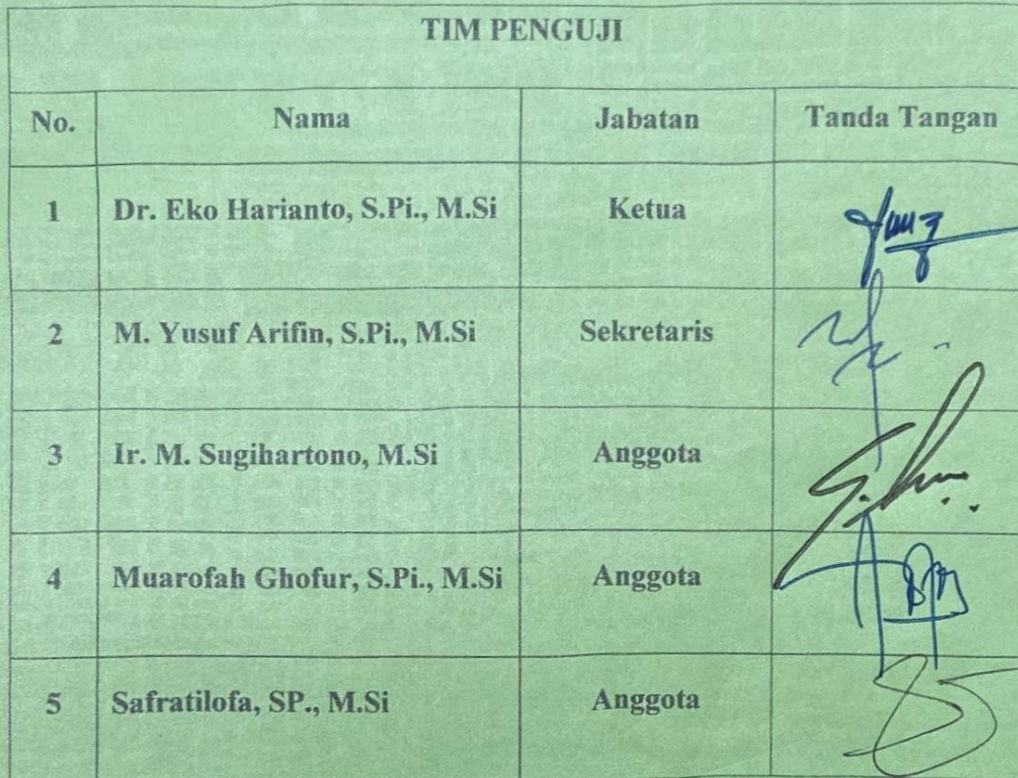 TIM PENGUJI
No. Nama Jabatan Tanda Tangan
1 Dr. Eko Harianto, S.Pi., M.Si Ketua
2 M. Yusuf Arifin, S.Pi., M.Si Sekretaris
3 Ir. M. Sugihartono, M.Si Anggota
4 Muarofah Ghofur, S.Pi., M.Si Anggota
5 Safratilofa, SP., M.Si Anggota